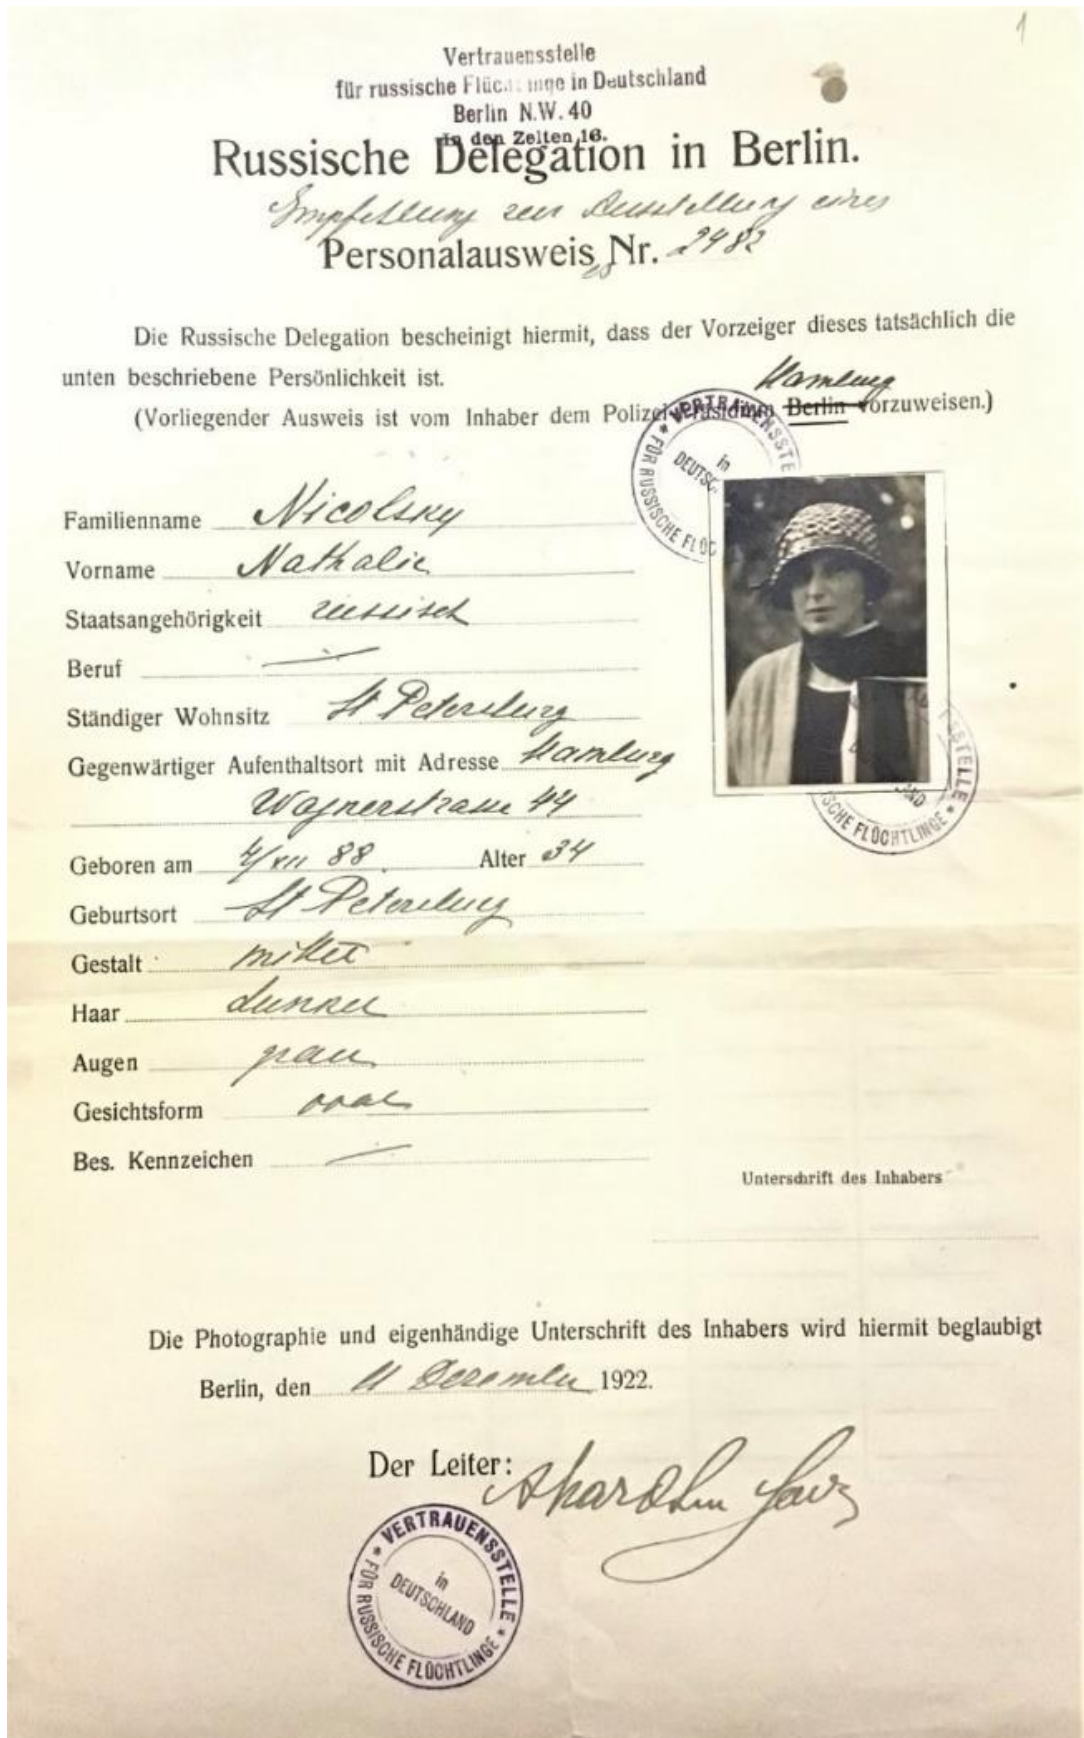 1
Vertrauensstelle
für russische Flüchtlinge in Deutschland
Berlin N.W. 40
In den Zelten 16.
Russische Delegation in Berlin.
Empfehlung zur Ausstellung eines
Personalausweis es Nr. 2482
Die Russische Delegation bescheinigt hiermit, dass der Vorzeiger dieses tatsächlich die
unten beschriebene Persönlichkeit ist.
Hamburg
(Vorliegender Ausweis ist vom Inhaber dem Polizei-Präsidium Berlin vorzuweisen.)
VERTRAUENSSTE
in
DEUTSC
FÜR RUSSISCHE FLÜC
Familienname Nicolsky
Vorname Nathalie
Staatsangehörigkeit russisch
Beruf —
Ständiger Wohnsitz St Petersburg
Gegenwärtiger Aufenthaltsort mit Adresse Hamburg
Wagnerstrasse 44
SSTELLE
AND
SCHE FLÜCHTLINGE
Geboren am 4/VII 88. Alter 34
Geburtsort St Petersburg
Gestalt mittel
Haar dunkel
Augen grau
Gesichtsform oval
Bes. Kennzeichen —
Unterschrift des Inhabers
Die Photographie und eigenhändige Unterschrift des Inhabers wird hiermit beglaubigt
Berlin, den 11 Dezember 1922.
Der Leiter:
VERTRAUENSSTELLE
in
DEUTSCHLAND
FÜR RUSSISCHE FLÜCHTLINGE